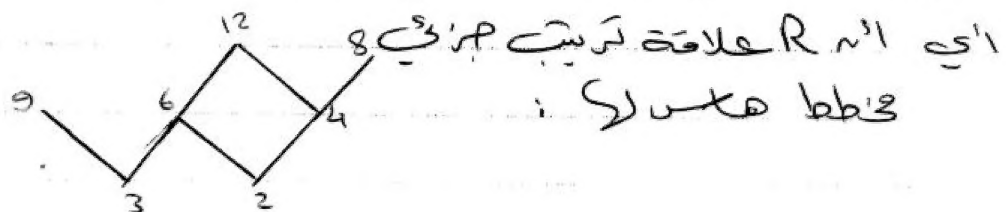 أي أنه R علاقة ترتيب جزئي
مخطط هاس لها :
12
8
9
6
4
3
2